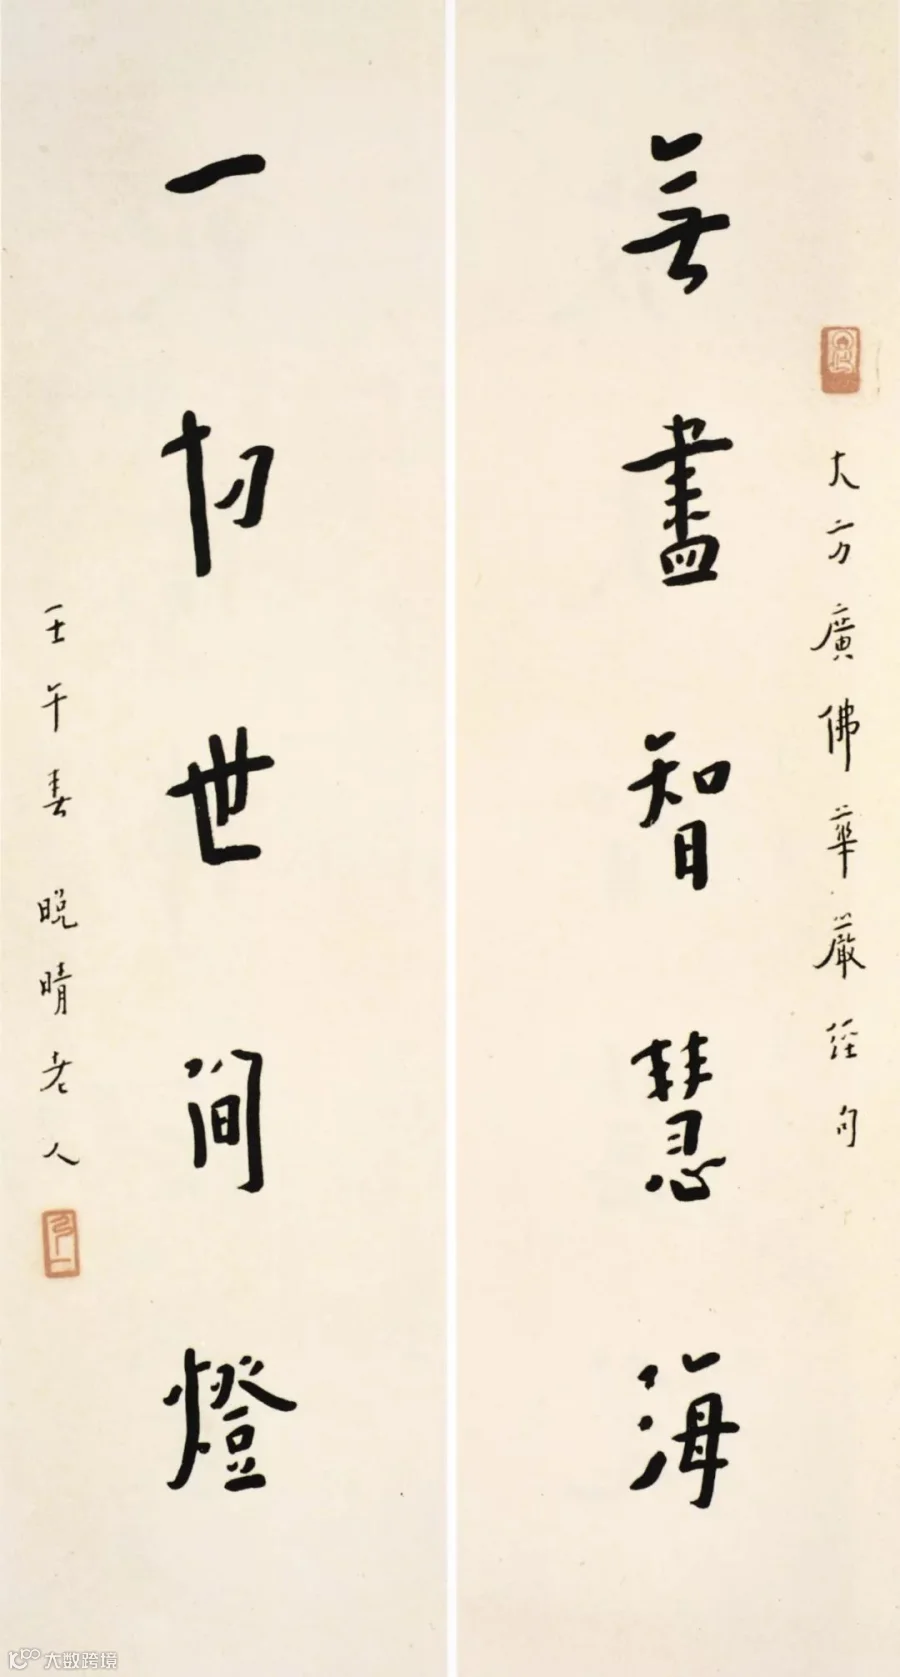 大方廣佛華嚴經句
無盡智慧海
一切世間燈
壬午春晚晴老人
大数跨境